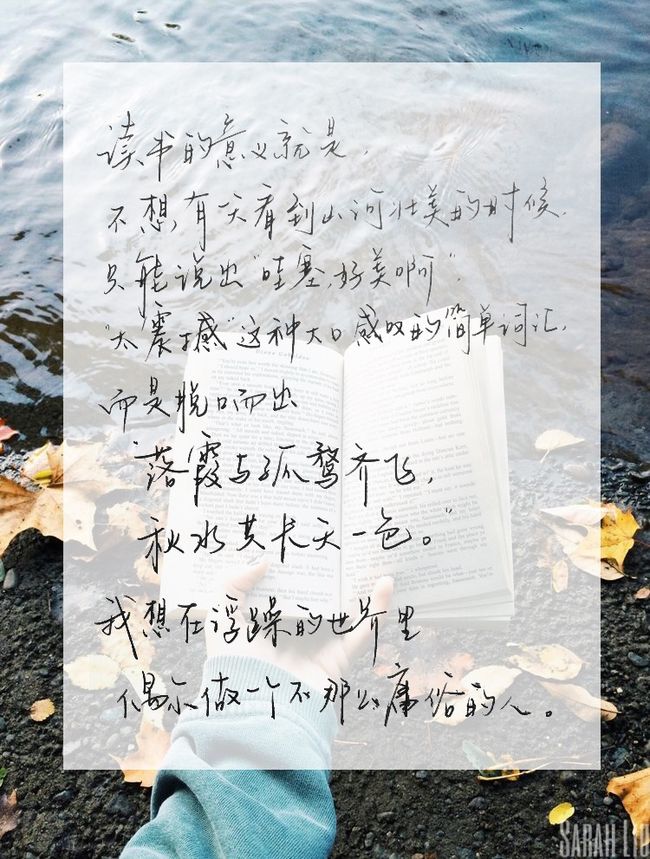 读书的意义就是,
不想,有一天看到山河壮美的时候,
只能说出"哇塞,好美啊",
"太震撼"这种大口感叹的简单词汇,
而是脱口而出
"落霞与孤鹜齐飞,
秋水共长天一色。"
我想在浮躁的世界里
偶尔做一个不那么庸俗的人。
SARAH LIU